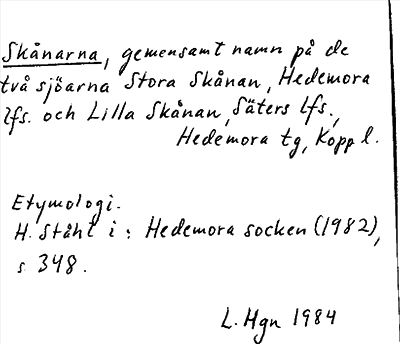 Skånarna, gemensamt namn på de
två sjöarna Stora Skånan, Hedemora
lfs. och Lilla Skånan, Säters lfs.,
Hedemora tg, Kopp l.
Etymologi.
H. Ståhl i: Hedemora socken (1982),
s. 348.
L. Hgn 1984